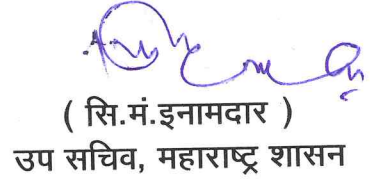 ( सि.मं.इनामदार )
उप सचिव, महाराष्ट्र शासन